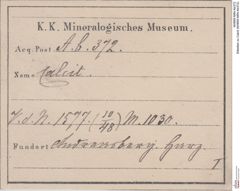 K. K. Mineralogisches Museum.
Acq. Post A. b. 372.
Name Calcit.
V. d. N. 1577. (10/48) M. 1030.
Fundort Andreasberg Harz.
I